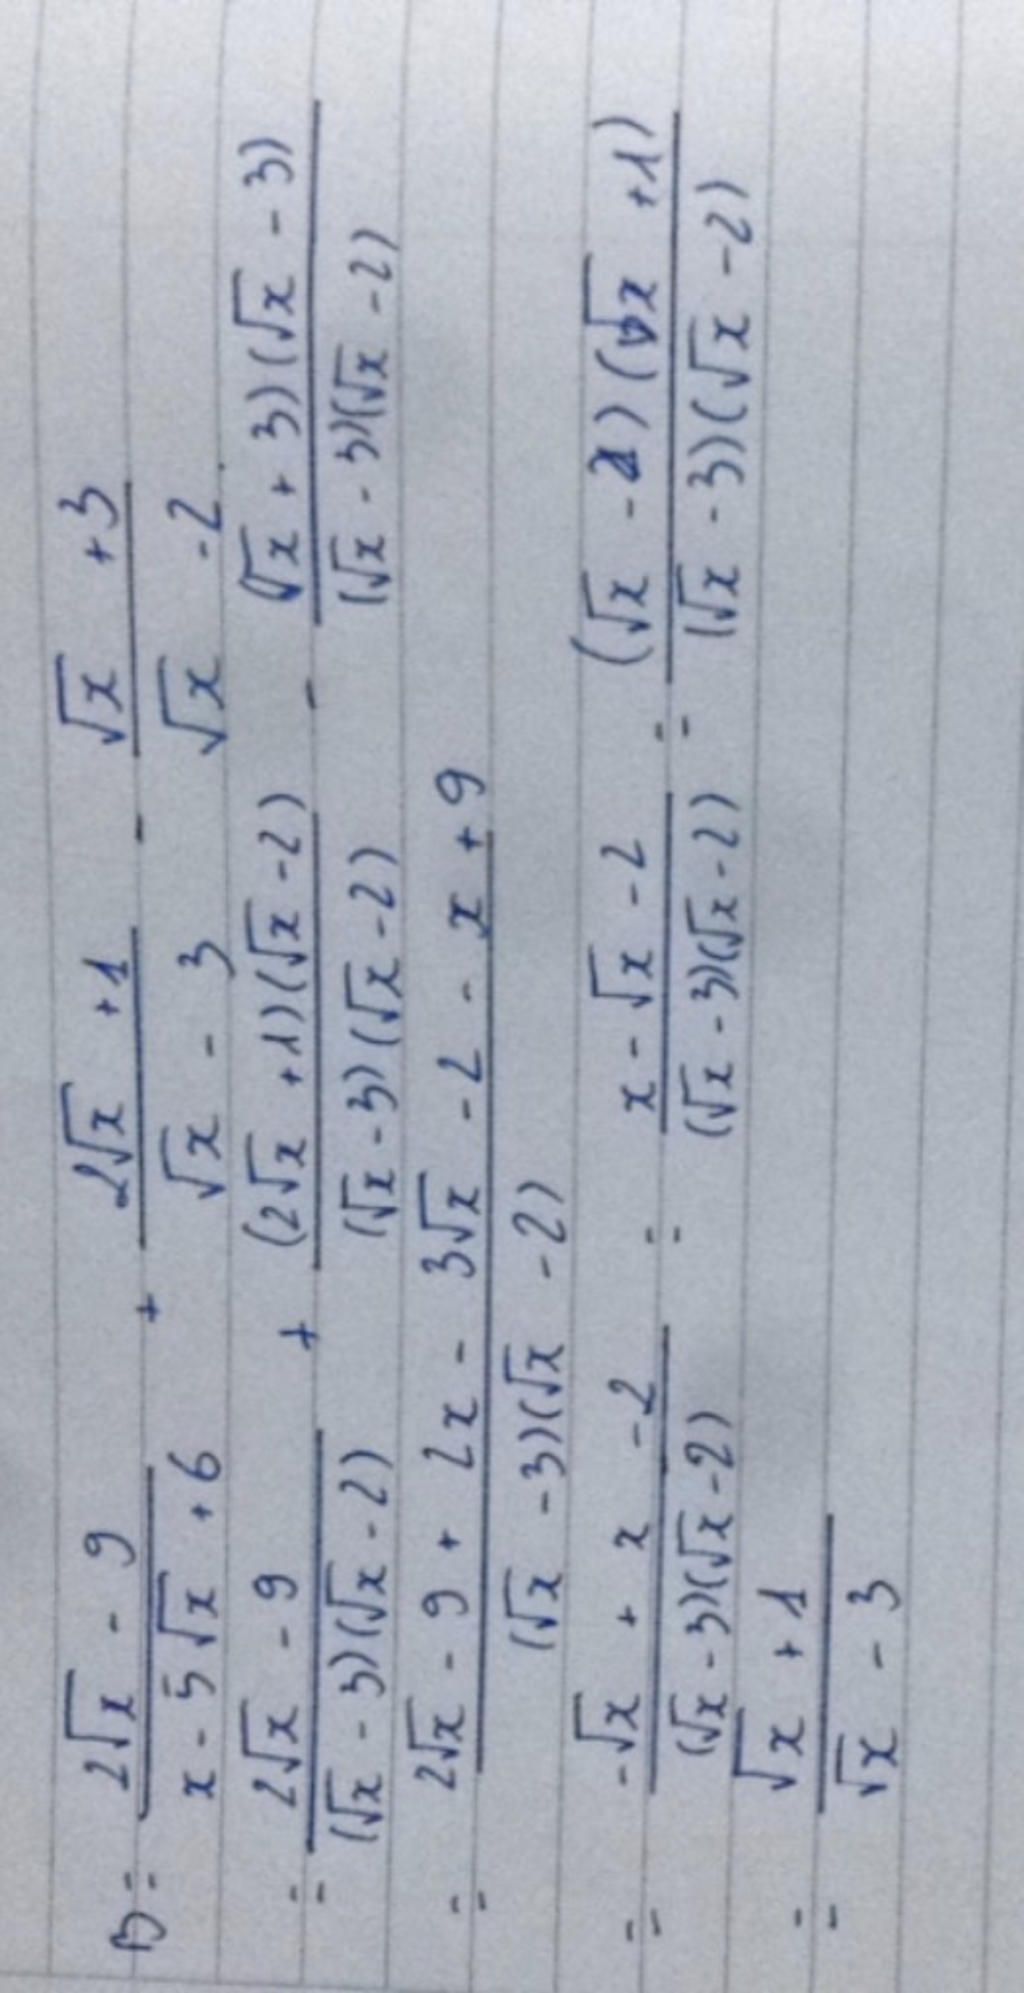 B = (2√x - 9)/(x - 5√x + 6) + (2√x + 1)/(√x - 3) - (√x + 3)/(√x - 2)
= (2√x - 9)/((√x - 3)(√x - 2)) + ((2√x + 1)(√x - 2))/((√x - 3)(√x - 2)) - ((√x + 3)(√x - 3))/((√x - 3)(√x - 2))
= (2√x - 9 + 2x - 3√x - 2 - x + 9)/((√x - 3)(√x - 2))
= (-√x + x - 2)/((√x - 3)(√x - 2)) = (x - √x - 2)/((√x - 3)(√x - 2)) = ((√x - 2)(√x + 1))/((√x - 3)(√x - 2))
= (√x + 1)/(√x - 3)